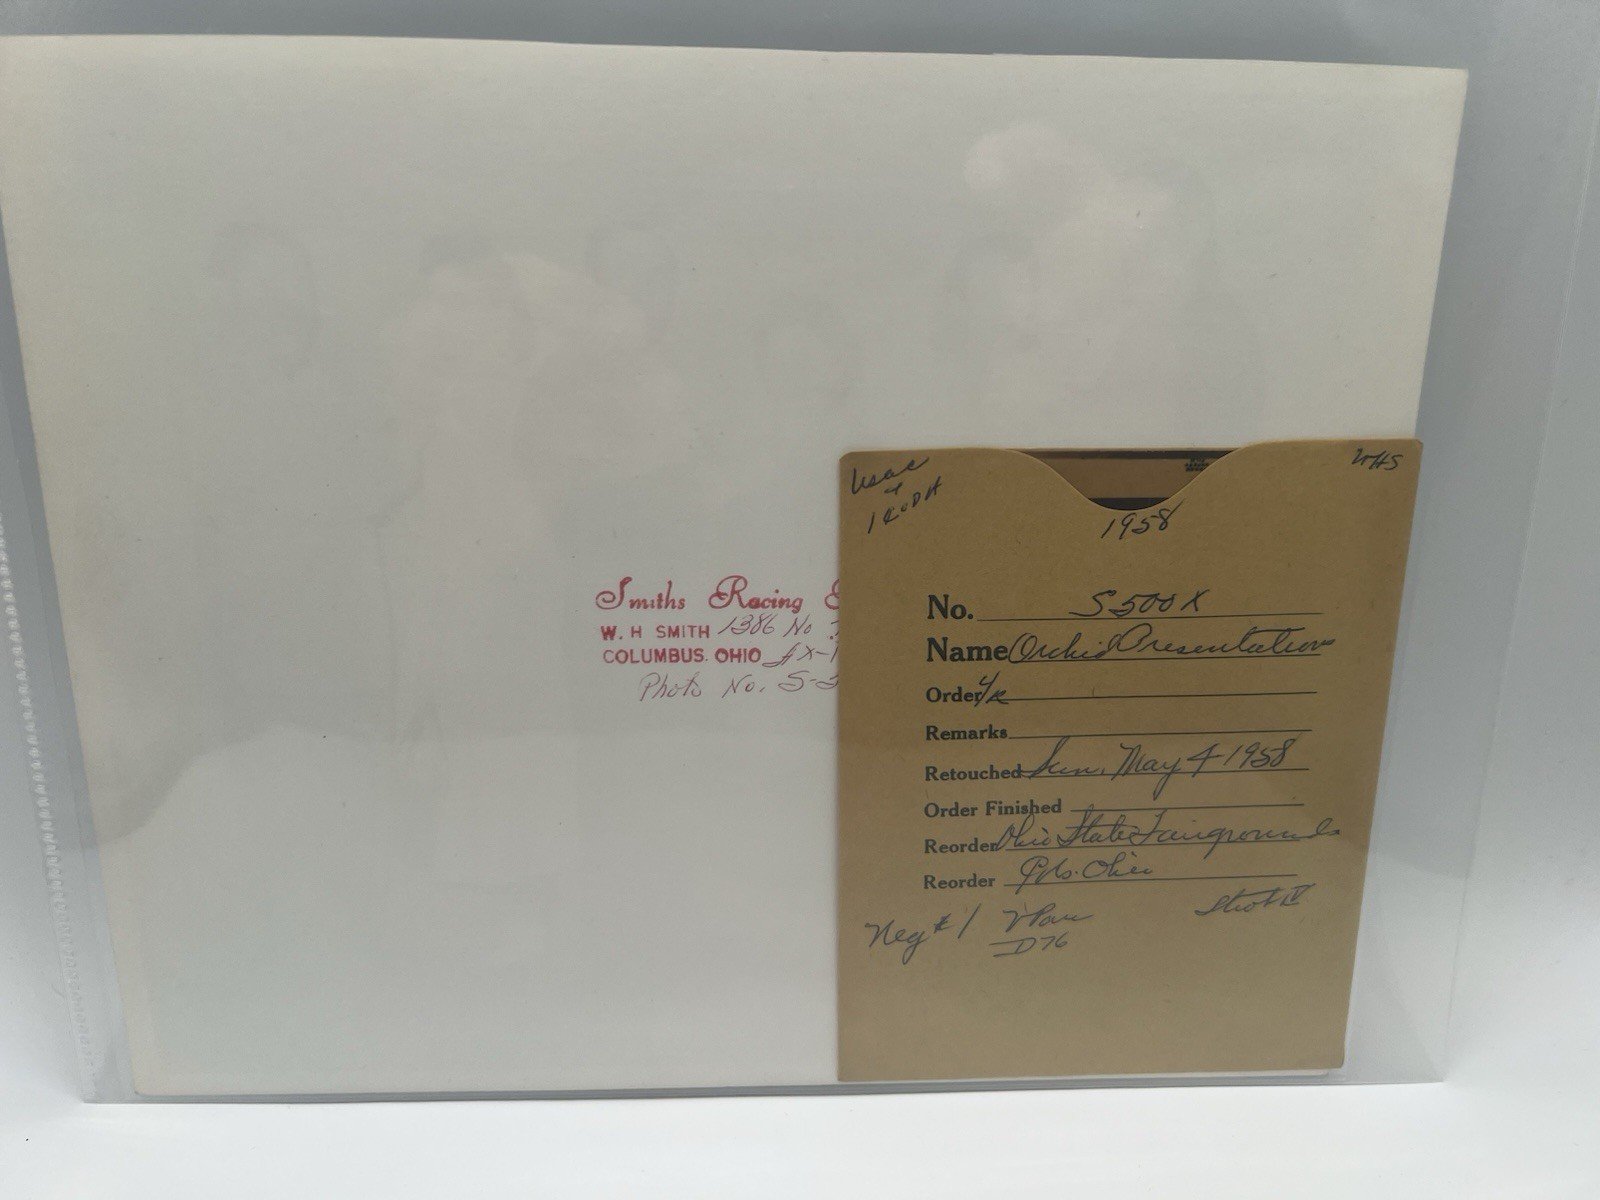 Smiths Racing
W. H SMITH 1386 No
COLUMBUS. OHIO AX-1
Photo No. S-5
WHS
1958
No. S500X
Name Orchid Presentation
Order
Remarks
Retouched Sun. May 4-1958
Order Finished
Reorder Ohio State Fairgrounds
Reorder Cols. Ohio
Neg #1
D76